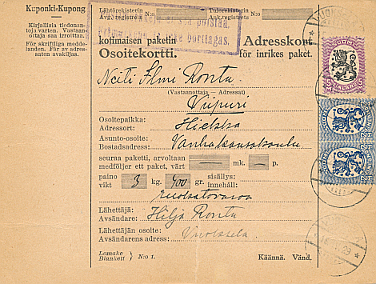 Kuponki-Kupong
Kirjallisia tiedonan-
toja varten. Vastaanottaja saa irroittaa.
För skriftliga meddelanden. Får av adressaten avskiljas.
Lähtörekisterin N:o
Avg.registrets
Tulorekisterin N:o
Ank.registrets
kotimaisen paketin
Osoitekortti.
Adresskort
för inrikes paket.
Neiti Elmi Rontu
(Vastaanottaja — Adressat)
Viipuri
Osoitepaikka:
Adressort: Hiekka
Asunto-osoite:
Bostadsadress: Vanhakansakoulu
seuraa paketti, arvoltaan
medföljer ett paket, värt mk. p.
paino
vikt 3 kg. 400 gr. sisältys:
innehåll:
ruokatavaraa
Lähettäjä:
Avsändare: Hilja Rontu
Lähettäjän osoite:
Avsändarens adress:
Lomake
Blankett N:o 1.
Käännä. Vänd.